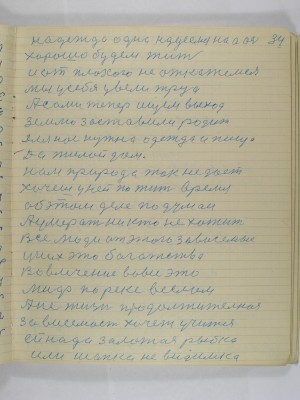 надежда одна надеемся на оч 34
хорошо будем жит
и от плохого не откажемся
мы у себя увели труд
А сами тепер ищем выход
землю заставили родит
для нас нужна одежда и пища
Да жилой дом.
нам природа так не даёт
хочем у неё пожит время
об этом две подумаи
А умират никто не хотит
Все люди от этого зависемы
у них это богатства
Вовлечение вове это
люда по реке веслом
А не тизн продолжителная
Зависемост хочет учится
ей нада залотая рыбка
или шапка не видимка